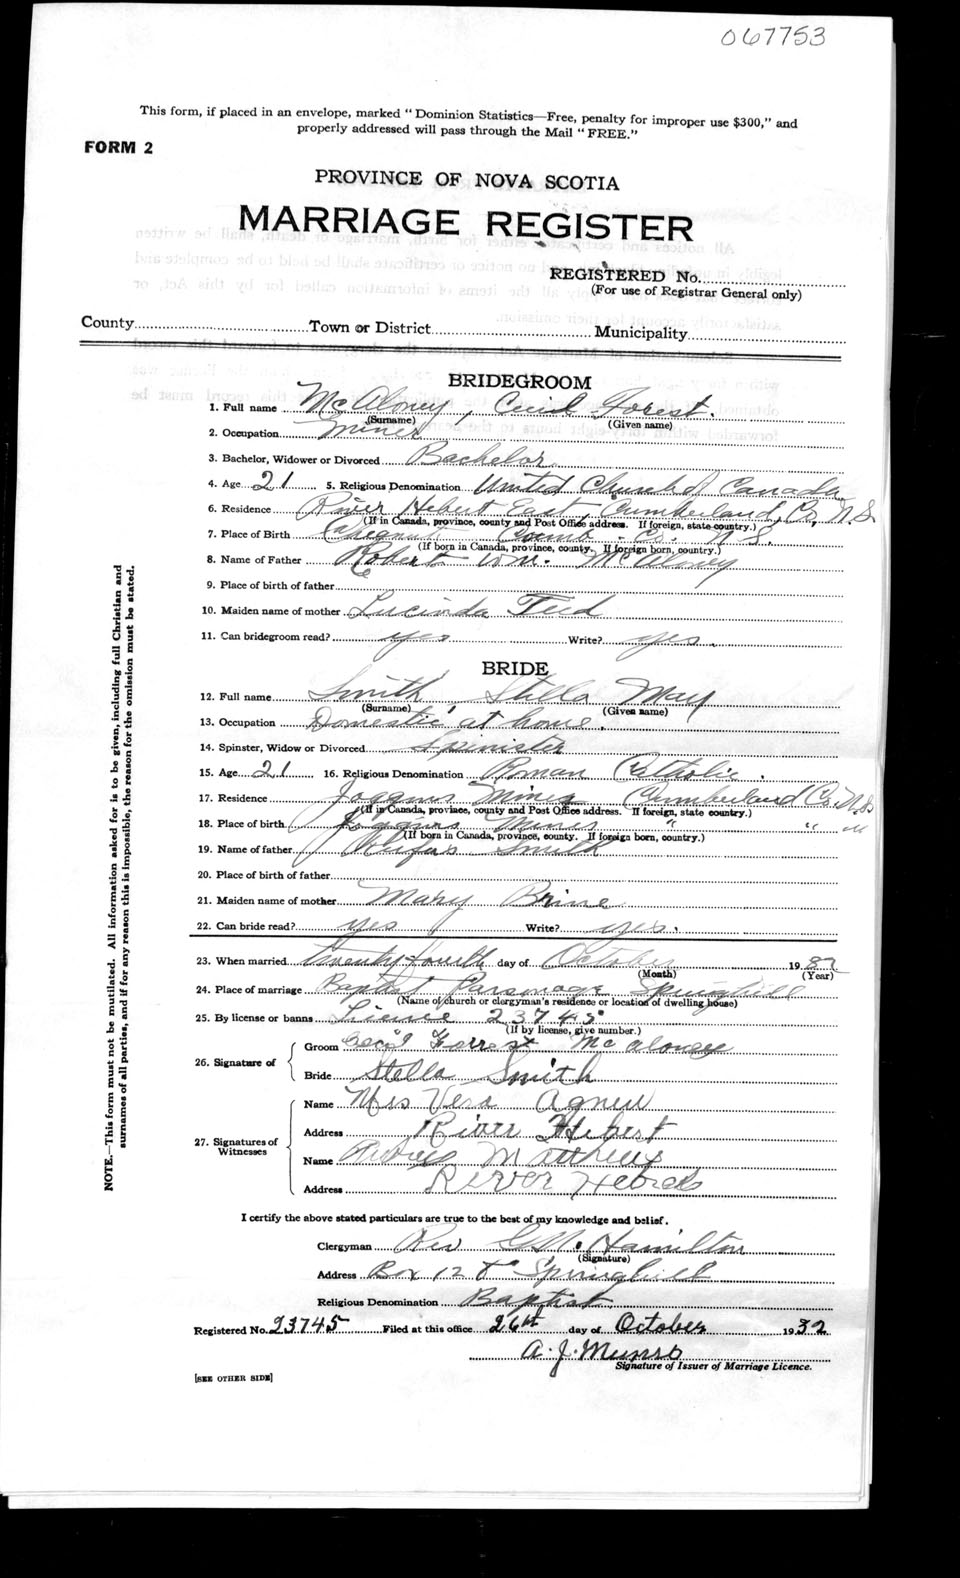 067753
This form, if placed in an envelope, marked "Dominion Statistics—Free, penalty for improper use $300," and
properly addressed will pass through the Mail "FREE."
FORM 2
PROVINCE OF NOVA SCOTIA
MARRIAGE REGISTER
REGISTERED No.
(For use of Registrar General only)
County Town or District Municipality
BRIDEGROOM
1. Full name McAloney, Cecil Forest.
(Surname) (Given name)
2. Occupation Miner
3. Bachelor, Widower or Divorced Bachelor
4. Age 21 5. Religious Denomination United Church of Canada
6. Residence River Hebert East, Cumberland Co, N.S.
(If in Canada, province, county and Post Office address. If foreign, state country.)
7. Place of Birth Cumb. Co. N.S.
(If born in Canada, province, county. If foreign born, country.)
8. Name of Father Robert Wm. McAloney
9. Place of birth of father
10. Maiden name of mother Lucinda Teed
11. Can bridegroom read? yes Write? yes.
BRIDE
12. Full name Smith Stella May
(Surname) (Given name)
13. Occupation Domestic at home.
14. Spinster, Widow or Divorced Spinister
15. Age 21 16. Religious Denomination Roman Catholic.
17. Residence Joggins Mines Cumberland Co. N.S
(If in Canada, province, county and Post Office address. If foreign, state country.)
18. Place of birth Joggins Mines " " "
(If born in Canada, province, county. If foreign born, country.)
19. Name of father Rufus Smith
20. Place of birth of father
21. Maiden name of mother Mary Brine
22. Can bride read? yes Write? yes.
23. When married twenty fourth day of October 1932
(Month) (Year)
24. Place of marriage Baptist Parsonage Springhill
(Name of church or clergyman's residence or location of dwelling house)
25. By license or banns Licence 23745
(If by license, give number.)
26. Signature of
Groom Cecil Forrest McAloney
Bride Stella Smith
27. Signatures of
Witnesses
Name Mrs Vera Agnew
Address River Hebert
Name Matthews
Address River Hebert
I certify the above stated particulars are true to the best of my knowledge and belief.
Clergyman Rev G.M. Hamilton
(Signature)
Address Box 128 Springhill
Religious Denomination Baptist
Registered No. 23745 Filed at this office 26th day of October 1932
A. J. Munro
Signature of Issuer of Marriage Licence.
[SEE OTHER SIDE]
NOTE.—This form must not be mutilated. All information asked for is to be given, including full Christian and
surnames of all parties, and if for any reason this is impossible, the reason for the omission must be stated.